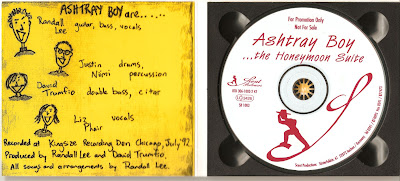 ASHTRAY BOY are......
Randall Lee guitar, bass, vocals
Justin drums,
Nümi percussion
David Trumfio double bass, citar
Liz Phair vocals
Recorded at Kingsize Recording Den Chicago, July '92
Produced by Randall Lee and David Trumfio,
All songs and arrangements by Randall Lee.
For Promotion Only
Not For Sale
Ashtray Boy
...the Honeymoon Suite